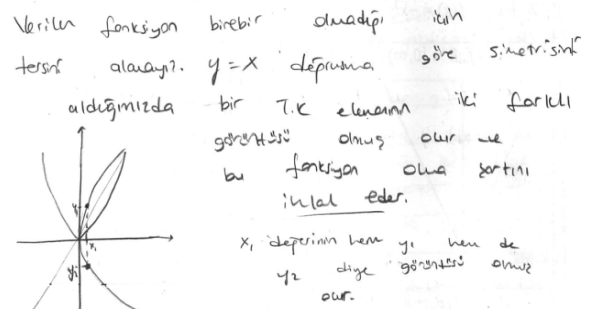 Verilen fonksiyon birebir olmadığı için
tersini alamayız. y=x doğrusuna göre simetrisini
aldığımızda bir T.K elemanın iki farklı
görüntüsü olmuş olur ve
bu fonksiyon olma şartını
ihlal eder.
x₁ değerinin hem y₁ hem de
y₂ diye görüntüsü olmuş
olur.
y₁
x₁